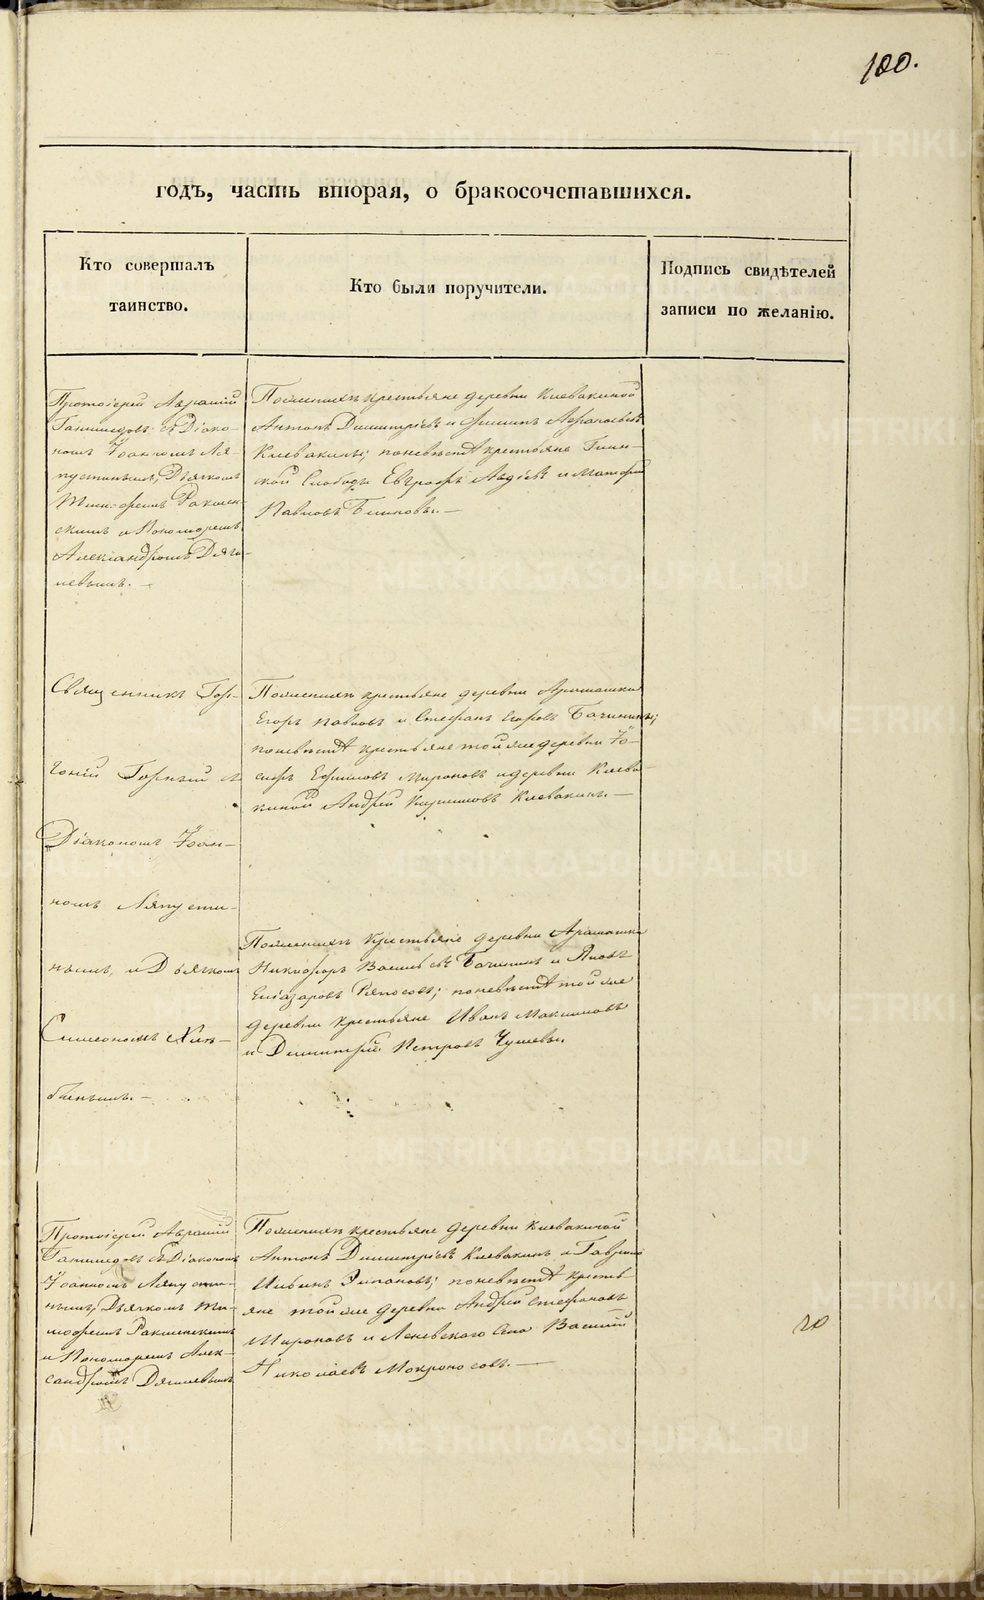 100.
годъ, часть вторая, о бракосочетавшихся.
Кто совершалъ
таинство.
Кто были поручители.
Подпись свидѣтелей
записи по желанію.
Протоіерей Авраамій
съ Діако-
номъ Іоанномъ Ля-
пустинымъ, Дьячкомъ
Тимофеемъ
и Пономаремъ
Александромъ Дяги-
левымъ. —
По женихѣ крестьяне деревни Клевакиной
Антонъ Димитріевъ и Филипъ
Клевакины; по невѣстѣ крестьяне Глин-
ской Слободы Евграфъ Авдѣевъ и Матфей
Павловъ —
Священникъ Гор-
гоній Горный съ
Діакономъ Іоан-
номъ Ляпусти-
нымъ, и Дьячкомъ
Симеономъ Хлѣ-
бинымъ. —
По женихѣ крестьяне деревни Арамашки
Егоръ Павловъ и Стефанъ Егоровъ Бачинины;
по невѣстѣ крестьяне той же деревни Іо-
сифъ Ефимовъ Мироновъ и деревни Клева-
киной Андрей Клевакинъ. —
По женихѣ крестьяне деревни Арамашки
Никифоръ Васильевъ Бачининъ и Яковъ
Елиазаровъ Ряпосовъ; по невѣстѣ той же
деревни крестьяне Иванъ Максимовъ
и Димитрій Петровъ Чушевы.
Протоіерей Авраамій
съ Діакономъ
Іоанномъ Ляпусти-
нымъ, Дьячкомъ Ти-
мофеемъ
и Пономаремъ Алек-
сандромъ Дягилевымъ
По женихѣ крестьяне деревни Клевакиной
Антонъ Димитріевъ Клевакинъ и Гаврило
Ильинъ; по невѣстѣ кресть-
яне той же деревни Андрей Стефановъ
Мироновъ и Леневскаго Села Василій
Николаевъ Мокроносовъ. —
METRIKI.GASO-URAL.RU